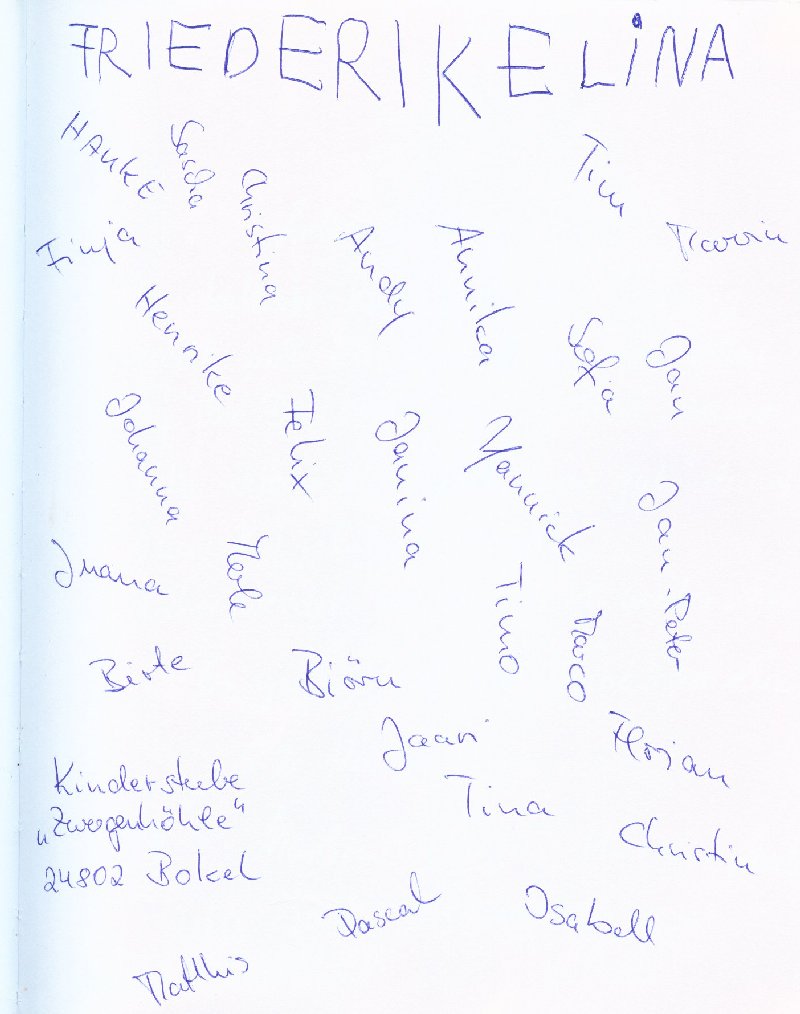 FRIEDERIKE LINA
HAUKE
Sascha
Christina
Tim
Marvin
Finja
Andy
Annika
Henrike
Sofja
Jan
Johanna
Felix
Janina
Yannick
Jan-Peter
Merle
Timo
Marco
Birte
Björn
Florian
Kinderstube
„Zwergenhöhle“
24802 Bokel
Tina
Christin
Pascal
Isabell
Matthis